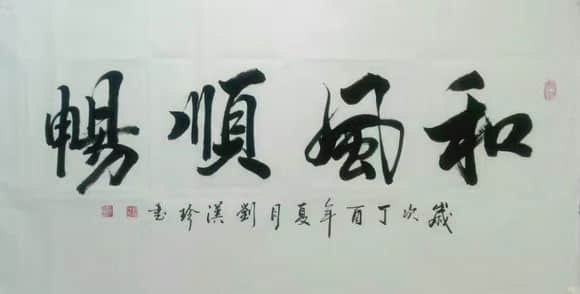 和風順暢
歲次丁酉年夏月劉漢珍書